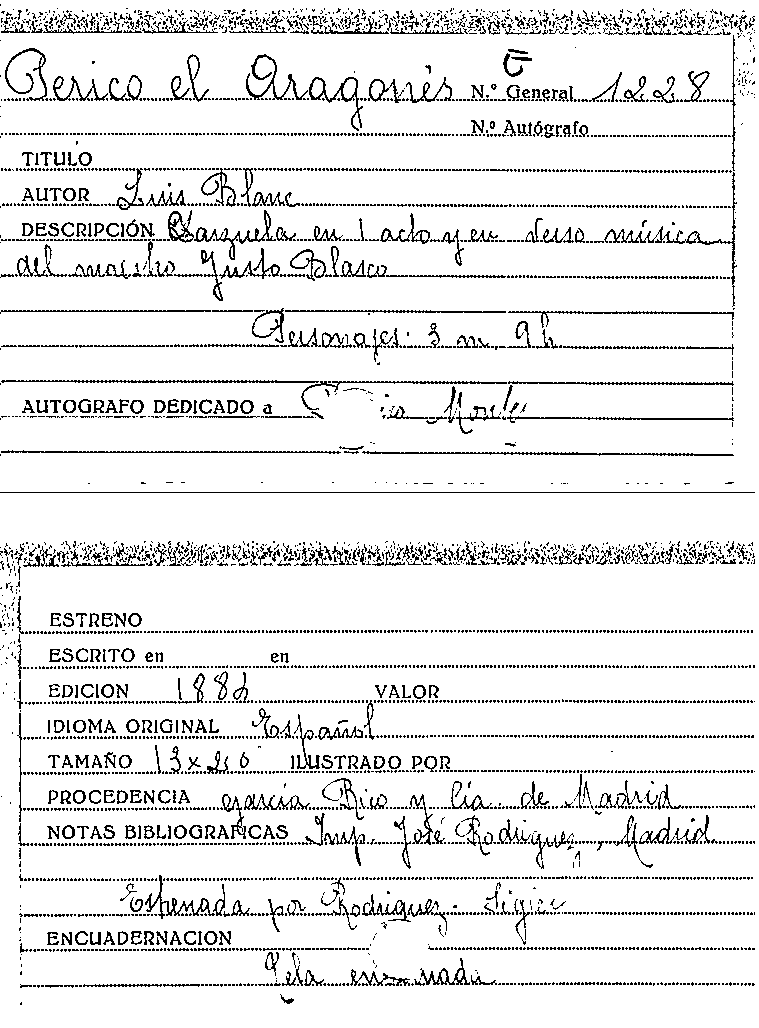 Perico el Aragonés N.º General 1228
N.º Autógrafo
TITULO
AUTOR Luis Blanc
DESCRIPCIÓN Zarzuela en 1 acto y en verso música
del maestro Justo Blasco
Personajes: 3 m. 9 h.
AUTOGRAFO DEDICADO a
ESTRENO
ESCRITO en en
EDICION 1882 VALOR
IDIOMA ORIGINAL Español
TAMAÑO 13 x 20 ILUSTRADO POR
PROCEDENCIA García Rico y Cía. de Madrid
NOTAS BIBLIOGRAFICAS Imp. José Rodriguez, Madrid
Estrenada por Rodriguez-
ENCUADERNACION
Tela